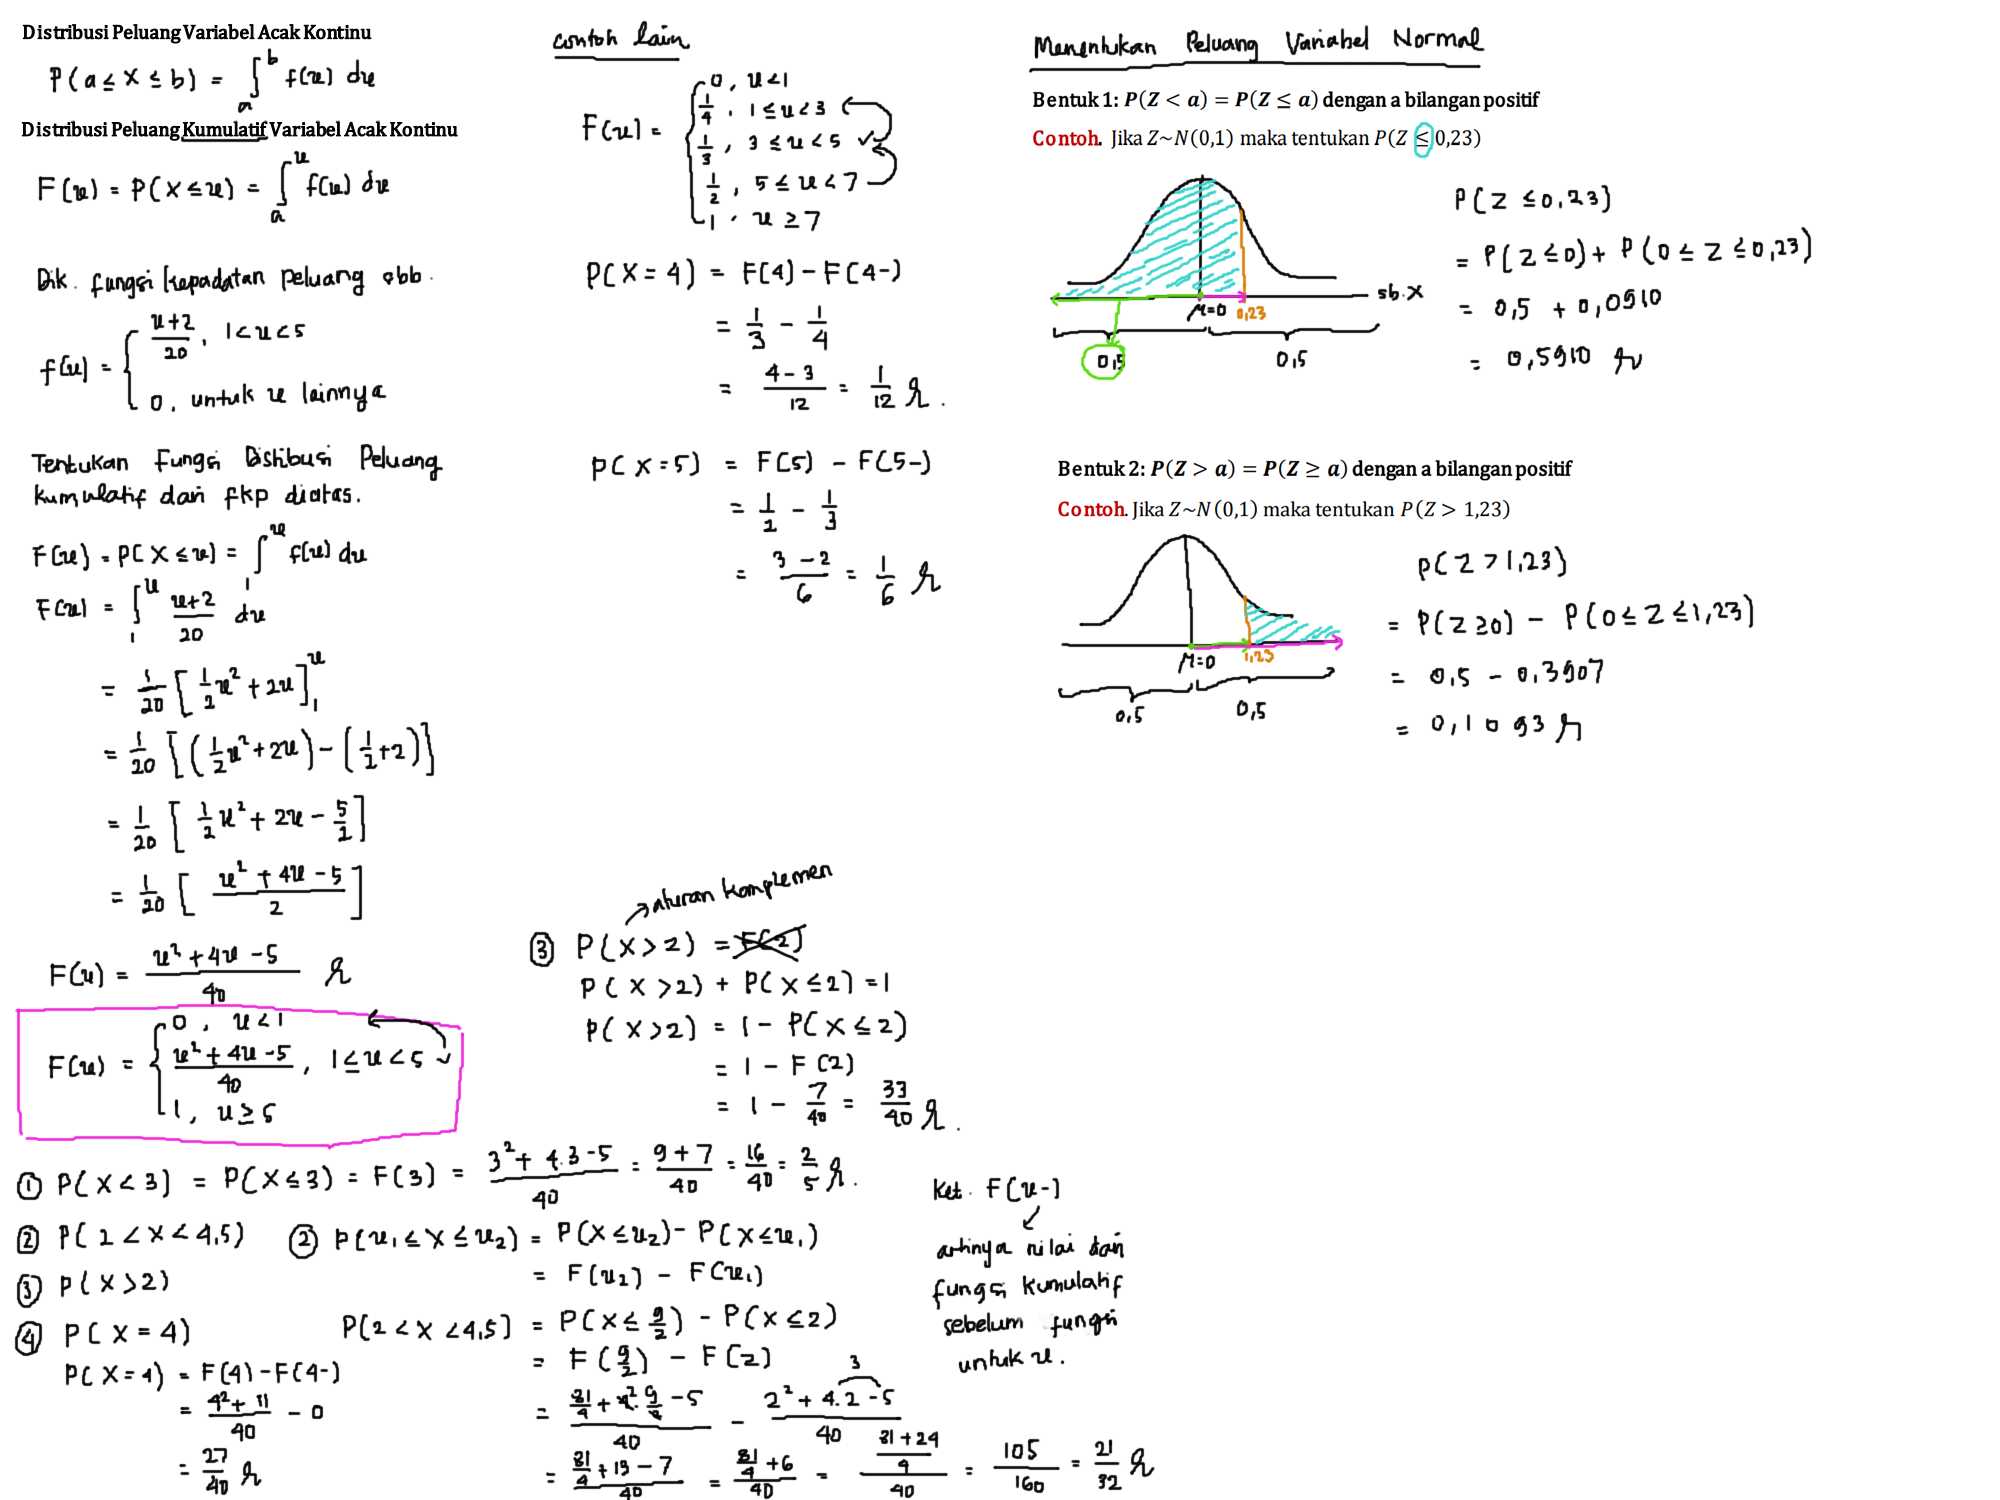 Distribusi Peluang Variabel Acak Kontinu
P(a ≤ X ≤ b) = ∫_a^b f(x) dx
Distribusi Peluang Kumulatif Variabel Acak Kontinu
F(x) = P(X ≤ x) = ∫_a^x f(x) dx
Dik. fungsi kepadatan peluang sbb.
f(x) = { (x+2)/20 , 1 < x < 5
0, untuk x lainnya
Tentukan Fungsi Distibusi Peluang
kumulatif dari fkp diatas.
F(x) = P(X ≤ x) = ∫_1^x f(x) dx
F(x) = ∫_1^x (x+2)/20 dx
= 1/20 [ 1/2 x² + 2x ]_1^x
= 1/20 [ (1/2 x² + 2x) - (1/2 + 2) ]
= 1/20 [ 1/2 x² + 2x - 5/2 ]
= 1/20 [ (x² + 4x - 5)/2 ]
F(x) = (x² + 4x - 5)/40
F(x) = { 0 , x < 1
(x² + 4x - 5)/40 , 1 ≤ x < 5
1 , x ≥ 5
① P(X < 3) = P(X ≤ 3) = F(3) = (3² + 4.3 - 5)/40 = (9 + 7)/40 = 16/40 = 2/5
② P(2 < X < 4,5)
③ P(X > 2)
④ P(X = 4)
P(X = 4) = F(4) - F(4-)
= (4² + 11)/40 - 0
= 27/40
② P(x₁ ≤ X ≤ x₂) = P(X ≤ x₂) - P(X ≤ x₁)
= F(x₂) - F(x₁)
P(2 < X < 4,5) = P(X ≤ 9/2) - P(X ≤ 2)
= F(9/2) - F(2)
= (81/4 + 4². 9/2 - 5)/40 - (2² + 4.2 - 5)/40
3
= (81/4 + 13 - 7)/40 = (81/4 + 6)/40 = ((81 + 24)/4)/40 = 105/160 = 21/32
contoh lain
F(x) = { 0 , x < 1
1/4 , 1 ≤ x < 3
1/3 , 3 ≤ x < 5 ✓
1/2 , 5 ≤ x < 7
1 , x ≥ 7
P(X = 4) = F(4) - F(4-)
= 1/3 - 1/4
= (4 - 3)/12 = 1/12
P(X = 5) = F(5) - F(5-)
= 1/2 - 1/3
= (3 - 2)/6 = 1/6
aturan komplemen
③ P(X > 2) = F(2)
P(X > 2) + P(X ≤ 2) = 1
P(X > 2) = 1 - P(X ≤ 2)
= 1 - F(2)
= 1 - 7/40 = 33/40
Ket. F(x-)
artinya nilai dari
fungsi kumulatif
sebelum fungsi
untuk x.
Menentukan Peluang Variabel Normal
Bentuk 1: P(Z < a) = P(Z ≤ a) dengan a bilangan positif
Contoh. Jika Z~N(0,1) maka tentukan P(Z ≤ 0,23)
sb.x
μ=0
0,23
0,5
0,5
P(Z ≤ 0,23)
= P(Z ≤ 0) + P(0 ≤ Z ≤ 0,23)
= 0,5 + 0,0910
= 0,5910
Bentuk 2: P(Z > a) = P(Z ≥ a) dengan a bilangan positif
Contoh. Jika Z~N(0,1) maka tentukan P(Z > 1,23)
μ=0
1,23
0,5
0,5
P(Z > 1,23)
= P(Z ≥ 0) - P(0 ≤ Z ≤ 1,23)
= 0,5 - 0,3907
= 0,1093